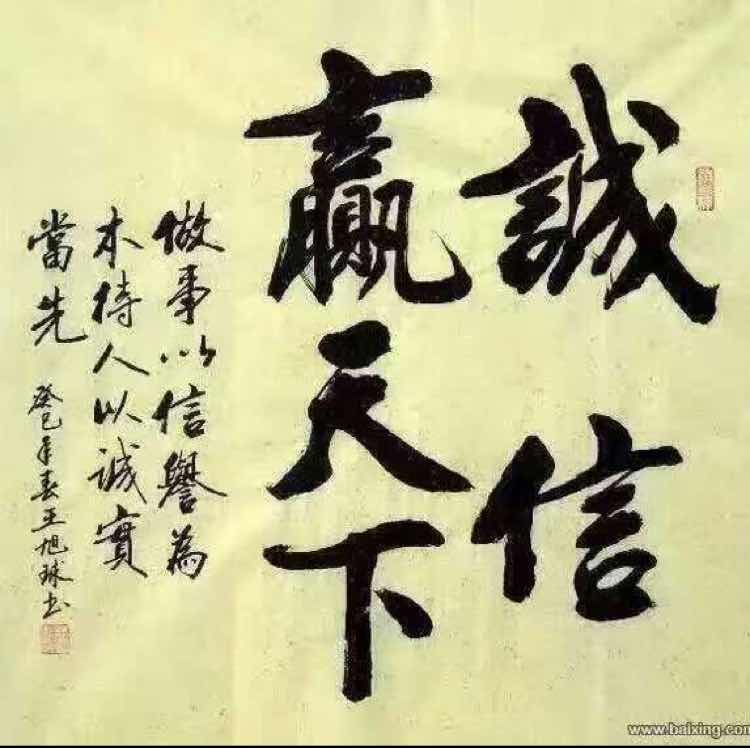 誠信
贏天下
做事以信譽為
本待人以誠實
當先
癸巳年春王旭琳书
www.baixing.com